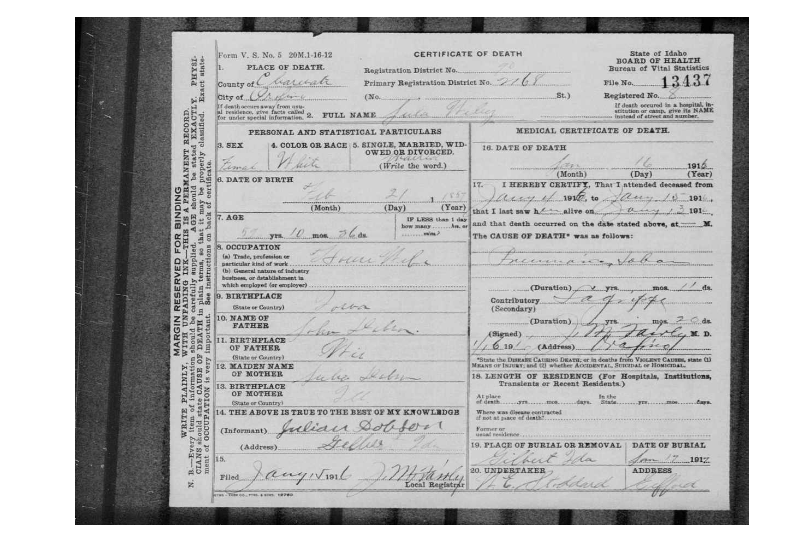 Form V. S. No. 5 20M.1-16-12
CERTIFICATE OF DEATH
State of Idaho
BOARD OF HEALTH
Bureau of Vital Statistics
1. PLACE OF DEATH.
Registration District No.
County of
Primary Registration District No. 2168
File No. 13437
City of Orofino
(No. St.)
Registered No.
If death occurs away from usual residence, give facts called for under special information.
2. FULL NAME Julia Wiley
If death occured in a hospital, institution or camp, give its NAME instead of street and number.
PERSONAL AND STATISTICAL PARTICULARS
3. SEX
Female
4. COLOR OR RACE
White
5. SINGLE, MARRIED, WIDOWED OR DIVORCED.
(Write the word.)
6. DATE OF BIRTH
Feb 21 1
(Month) (Day) (Year)
7. AGE
yrs. 10 mos. 26 ds.
IF LESS than 1 day how many hrs. or min.?
8. OCCUPATION
(a) Trade, profession or particular kind of work House Wife
(b) General nature of industry business, or establishment in which employed (or employer)
9. BIRTHPLACE
(State or Country) Iowa
10. NAME OF FATHER
John
11. BIRTHPLACE OF FATHER
(State or Country) Wis
12. MAIDEN NAME OF MOTHER
13. BIRTHPLACE OF MOTHER
(State or Country)
14. THE ABOVE IS TRUE TO THE BEST OF MY KNOWLEDGE
(Informant) Julian Dobson
(Address) Ida
15.
Filed Jany 1916 J. M. Fairly
Local Registrar
MEDICAL CERTIFICATE OF DEATH.
16. DATE OF DEATH
Jan 16 191
(Month) (Day) (Year)
17. I HEREBY CERTIFY, That I attended deceased from
Jany 191 to Jany 15 191
that I last saw her alive on Jany 13 191
and that death occurred on the date stated above, at M.
The CAUSE OF DEATH* was as follows:
Pneumonia, Lobar
(Duration) yrs. mos. 11 ds.
Contributory La grippe
(Secondary)
(Duration) yrs. mos. 20 ds.
(Signed) J. M. Fairly M. D.
(Address) Orofino
*State the DISEASE CAUSING DEATH; or in deaths from VIOLENT CAUSES, state (1) MEANS OF INJURY; and (2) whether ACCIDENTAL, SUICIDAL or HOMICIDAL.
18. LENGTH OF RESIDENCE (For Hospitals, Institutions, Transients or Recent Residents.)
At place of death yrs. mos. days. In the State yrs. mos. days.
Where was disease contracted if not at place of death?
Former or usual residence
19. PLACE OF BURIAL OR REMOVAL
Gilbert Ida
DATE OF BURIAL
Jan 17 191
20. UNDERTAKER
Stoddard
ADDRESS
Gifford
MARGIN RESERVED FOR BINDING
WRITE PLAINLY, WITH UNFADING INK—THIS IS A PERMANENT RECORD.
N. B.—Every item of information should be carefully supplied. AGE should be stated EXACTLY. PHYSICIANS should state CAUSE OF DEATH in plain terms, so that it may be properly classified. Exact statement of OCCUPATION is very important. See instructions on back of certificate.